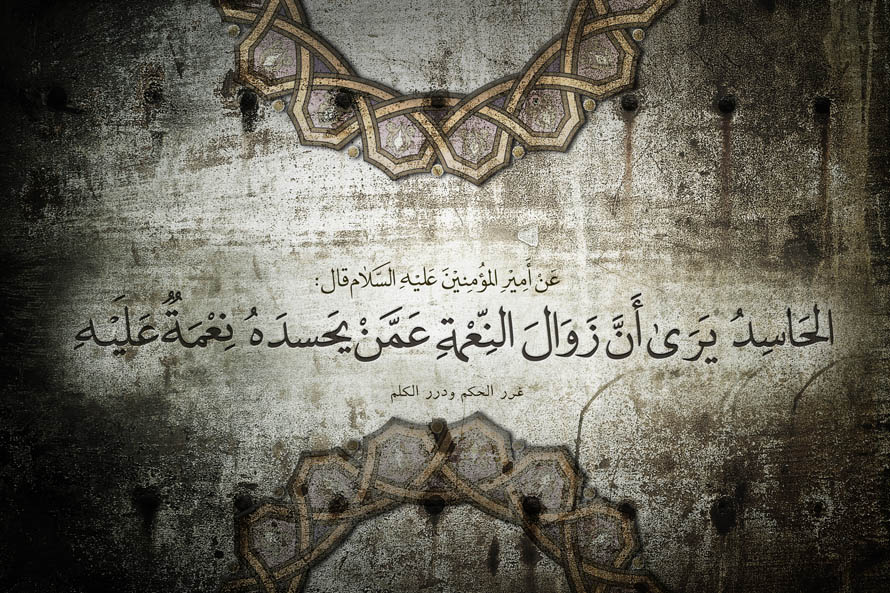 عَنْ أَمِيْرِ المُؤمِنِيْنَ عَلَيْهِ السَّلَام قال:
الحَاسِدُ يَرَىٰ أَنَّ زَوَالَ النِّعْمَةِ عَمَّنْ يَحسدَهُ نِعْمَةٌ عَلَيْهِ
غرر الحكم ودرر الكلم